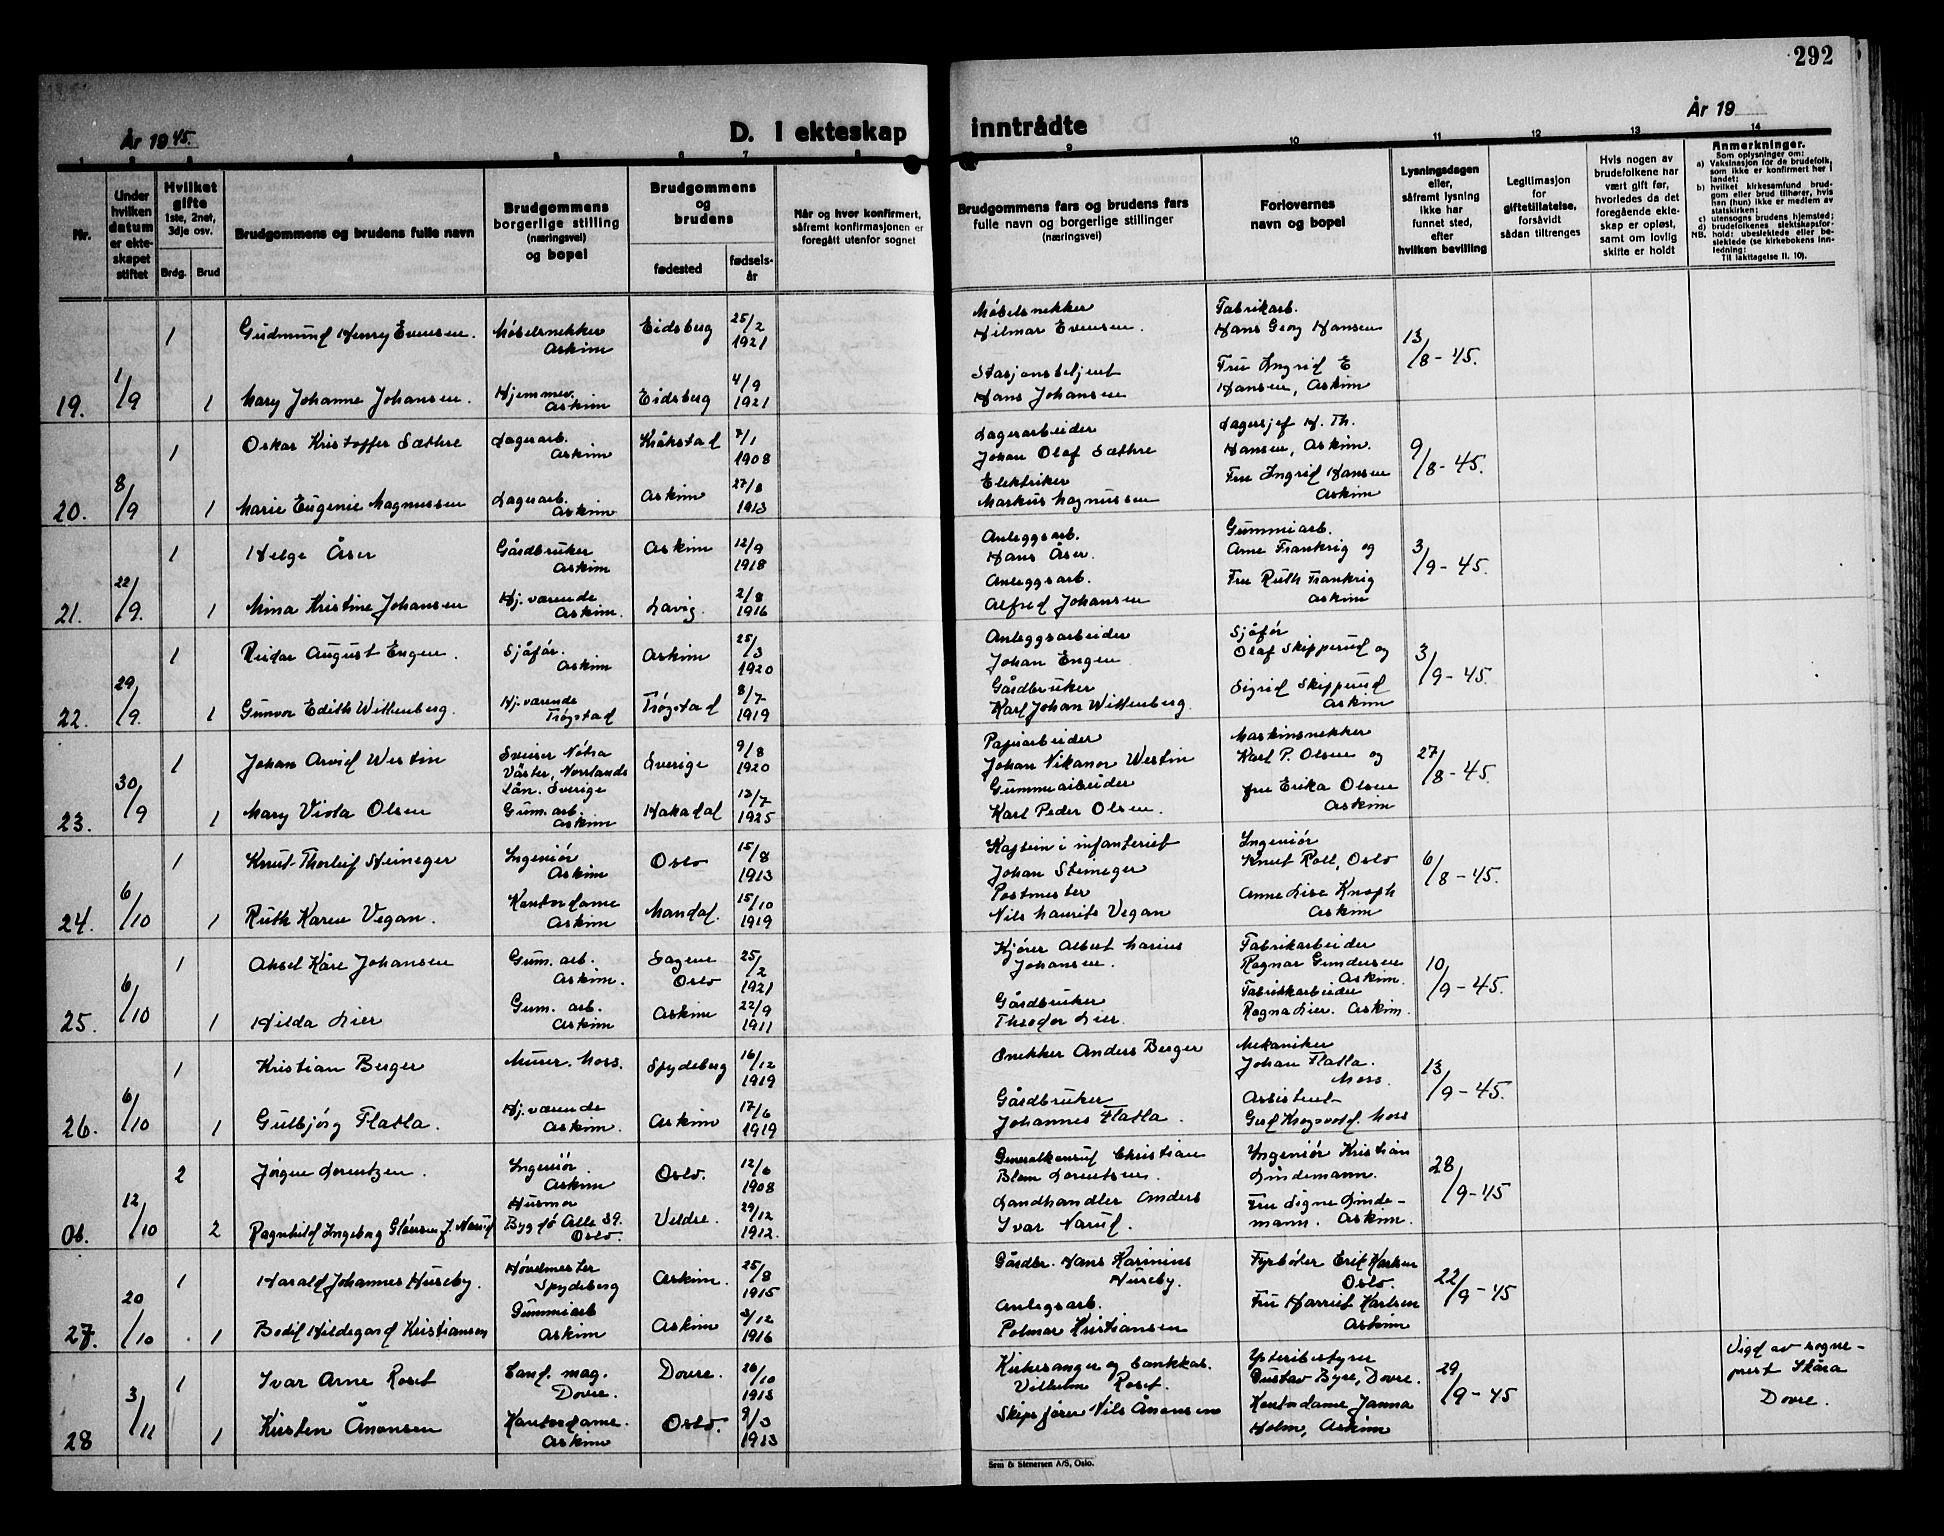 292
År 1945.
D. I ekteskap
inntrådte
År 19
1 2 3 4 5 6 7 8
9 10 11 12 13 14
Nr.
Under hvilken datum er ekteskapet stiftet
Hvilket gifte 1ste, 2net, 3dje osv.
Brdg. Brud
Brudgommens og brudens fulle navn
Brudgommens borgerlige stilling (næringsvei) og bopel
Brudgommens og brudens
fødested
fødselsår
Når og hvor konfirmert, såfremt konfirmasjonen er foregått utenfor sognet
Brudgommens fars og brudens fars fulle navn og borgerlige stillinger (næringsvei)
Forlovernes navn og bopel
Lysningsdagen eller, såfremt lysning ikke har funnet sted, efter hvilken bevilling
Legitimasjon for giftetillatelse, forsåvidt sådan tiltrenges
Hvis nogen av brudefolkene har vært gift før, hvorledes da det foregående ekteskap er opløst, samt om lovlig skifte er holdt
Anmerkninger.
Som oplysninger om:
a) Vaksinasjon for de brudefolk, som ikke er konfirmert her i landet;
b) hvilket kirkesamfund brudgom eller brud tilhører, hvis han (hun) ikke er medlem av statskirken;
c) utensogns brudens hjemsted;
d) brudefolkenes slektskapsforhold: ubeslektede eller beslektede (se kirkebokens innledning:
NB.
Til iakttagelse II. 10).
19. 1/9
1 Gudmund Henry Evensen. Møbelsnekker Askim Eidsberg 25/2 1921
Møbelsnekker Hilmar Evensen. Fabrikarb. Hans Georg Hansen 13/8-45.
1 Mary Johanne Johansen. Hjemmev. Askim Eidsberg 4/9 1921
Stasjonsbetjent Hans Johansen Fru Ingrid E Hansen, Askim
20. 8/9
1 Oskar Kristoffer Sæthre Lagerarb. Askim Kråkstad 7/1 1908
Lagerarbeider Johan Olaf Sæthre Lagersjef H. Th. Hansen, Askim. 9/8-45.
1 Marie Eugenie Magnussen Lagerarb. Askim Askim 27/8 1913
Elektriker Markus Magnussen Fru Ingrid Hansen Askim
21. 22/9.
1 Helge Åser Gårdbruker Askim Askim 12/9 1918
Anleggsarb. Hans Åser. Gummiarb. Arne Frankrig og 3/9-45.
1 Mina Kristine Johansen Hj. værende Askim. Lavig. 2/8 1916
Anleggsarb. Alfred Johansen Fru Ruth Frankrig Askim
22. 29/9.
1 Reidar August Engen. Sjåfør. Askim Askim 25/3 1920
Anleggsarbeider Johan Engen Sjåfør Olaf Skipperud og 3/9-45.
1 Gunvor Edith Wittenberg. Hj. værende Trøgstad Trøgstad 8/7 1919
Gårdbruker Karl Johan Wittenberg. Sigrid Skipperud Askim
23. 30/9
1 Johan Arvid Westin Väster, Norrlands Län. Sverige Sverige 9/8 1920
Papirarbeider Johan Nikanor Westin Maskinsnekker Karl P. Olsen og 27/8-45.
1 Mary Viola Olsen Gum. arb. Askim Hakadal 13/7 1925
Gummiarbeider Karl Peder Olsen. fru Erika Olsen Askim
24. 6/10
1 Knut-Thorleif Steineger Ingeniør Askim Oslo 15/8 1913
Kaptein i infanteriet Johan Steineger Ingeniør Knut Roll, Oslo 6/8-45.
1 Ruth Karen Vegan. Kontordame Askim Mandal. 15/10 1919
Postmester Nils Maurits Vegan Anne Lise Knoph Askim
25. 6/10
1 Aksel Kåre Johansen Gum. arb. Askim. Sagene Oslo 25/2 1921
Kjører Albert Marius Johansen. Fabrikarbeider Ragnar Gundersen Askim. 10/9-45.
1 Hilda Lier Gum. arb. Askim Askim 22/9 1911
Gårdbruker Theodor Lier. Fabrikkarbeider Ragna Lier. Askim.
26. 6/10
1 Kristian Berger Murer. Moss. Spydeberg 16/12 1919
Snekker Anders Berger Mekaniker Johan Flatla. Moss. 13/9-45.
1 Gulbjørg Flatla. Hj. værende Askim. Askim 17/6 1919
Gårdbruker Johannes Flatla. Assistent Moss
06. 12/10
2 Jørgen Lorentzen. Ingeniør. Askim Oslo. 12/6 1908
Generalkonsul Christian Blom Lorentzen. Ingeniør Kristian Lindemann. 28/9-45
2 Ragnhild Ingeborg f. Narud Husmor Bygdø Alle 59. Oslo. Veldre. 29/12 1912.
Landhandler Anders Ivar Narud. Fru Signe Lindemann. Askim.
27. 20/10
1 Harald Johannes Huseby. Spydeberg Askim. 25/8 1915
Gårdbr. Hans Karinius Huseby. Fyrbøter Erik Karlsen Oslo. 22/9-45
1 Bodil Hildegard Kristiansen Gummiarb Askim Askim 2/12 1916
Anlegsarb. Polmar Kristiansen Fru Harriet Karlsen Askim
28 3/11
1 Ivar Arne Roset Cand. mag. Dovre. Dovre. 26/10 1913
Kirkesanger og bankkas. Vilhelm Roset. Ysteribestyrer Gustav Byre, Dovre. 29/9-45
Vigd av sogneprest Skåra Dovre.
1 Kirsten Ånonsen Kontordame. Askim Oslo. 9/3 1913
Skipsfører Nils Ånonsen Kontordame Janna Holm, Askim
Sem & Stenersen A/S, Oslo.